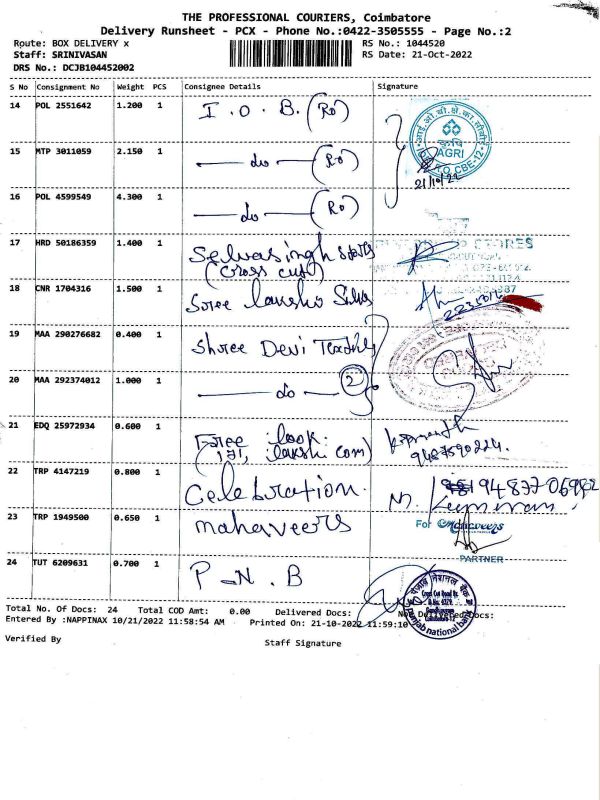 THE PROFESSIONAL COURIERS, Coimbatore
Delivery Runsheet - PCX - Phone No.:0422-3505555 - Page No.:2
Route: BOX DELIVERY x RS No.: 1044520
Staff: SRINIVASAN RS Date: 21-Oct-2022
DRS No.: DCJB104452002
S No Consignment No Weight PCS Consignee Details Signature
14 POL 2551642 1.200 1 I.O.B. (Ro)
15 MTP 3011059 2.150 1 — do — (Ro)
AGRI
RO, CBE-12
21/10/22
16 POL 4599549 4.300 1 — do — (Ro)
17 HRD 50186359 1.400 1 Selvasingh
(Cross cut)
STORES
18 CNR 1704316 1.500 1 Sree
19 MAA 290276682 0.400 1 Shree Devi
20 MAA 292374012 1.000 1 — do — 2
21 EDQ 25972934 0.600 1 look.
9487590224.
22 TRP 4147219 0.800 1 Celebration.
23 TRP 1949500 0.650 1 mahaveers
For Mahaveers
PARTNER
24 TUT 6209631 0.700 1 P-N.B
पंजाब नैशनल बैंक
Punjab national bank
Total No. Of Docs: 24 Total COD Amt: 0.00 Delivered Docs: Not Delivered Docs:
Entered By :NAPPINAX 10/21/2022 11:58:54 AM Printed On: 21-10-2022 11:59:10
Verified By Staff Signature